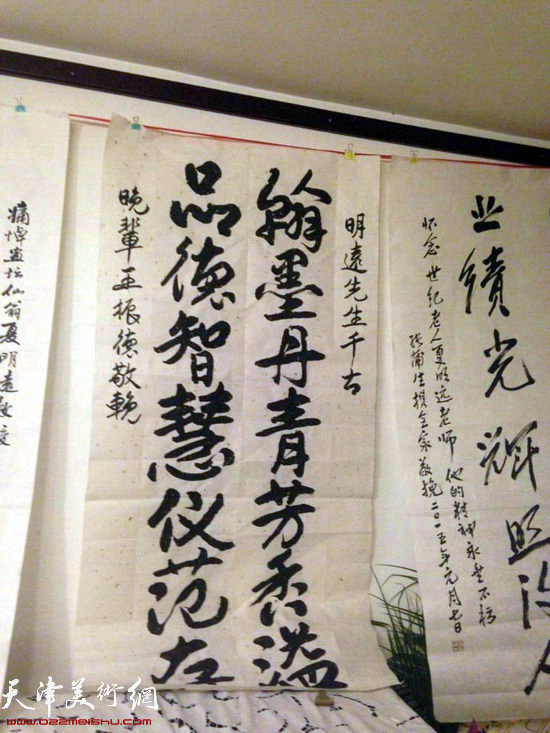 业绩光辉照后人
怀念世纪老人夏明远老师 他的精神永垂不朽
张蒲生携全家敬挽二〇一五年元月七日
明远先生千古
翰墨丹青芳香溢
品德智慧仪范存
晚辈王振德敬輓
痛悼画坛仙翁夏明远教授
天津美術網
www.022meishu.com